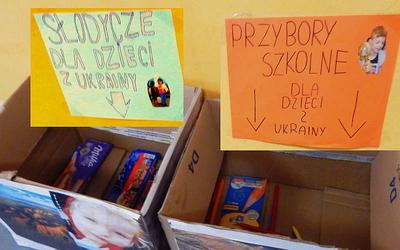 SŁODYCZE
DLA DZIECI
Z UKRAINY
PRZYBORY
SZKOLNE
DLA
DZIECI
Z
UKRAINY
Milka
D4